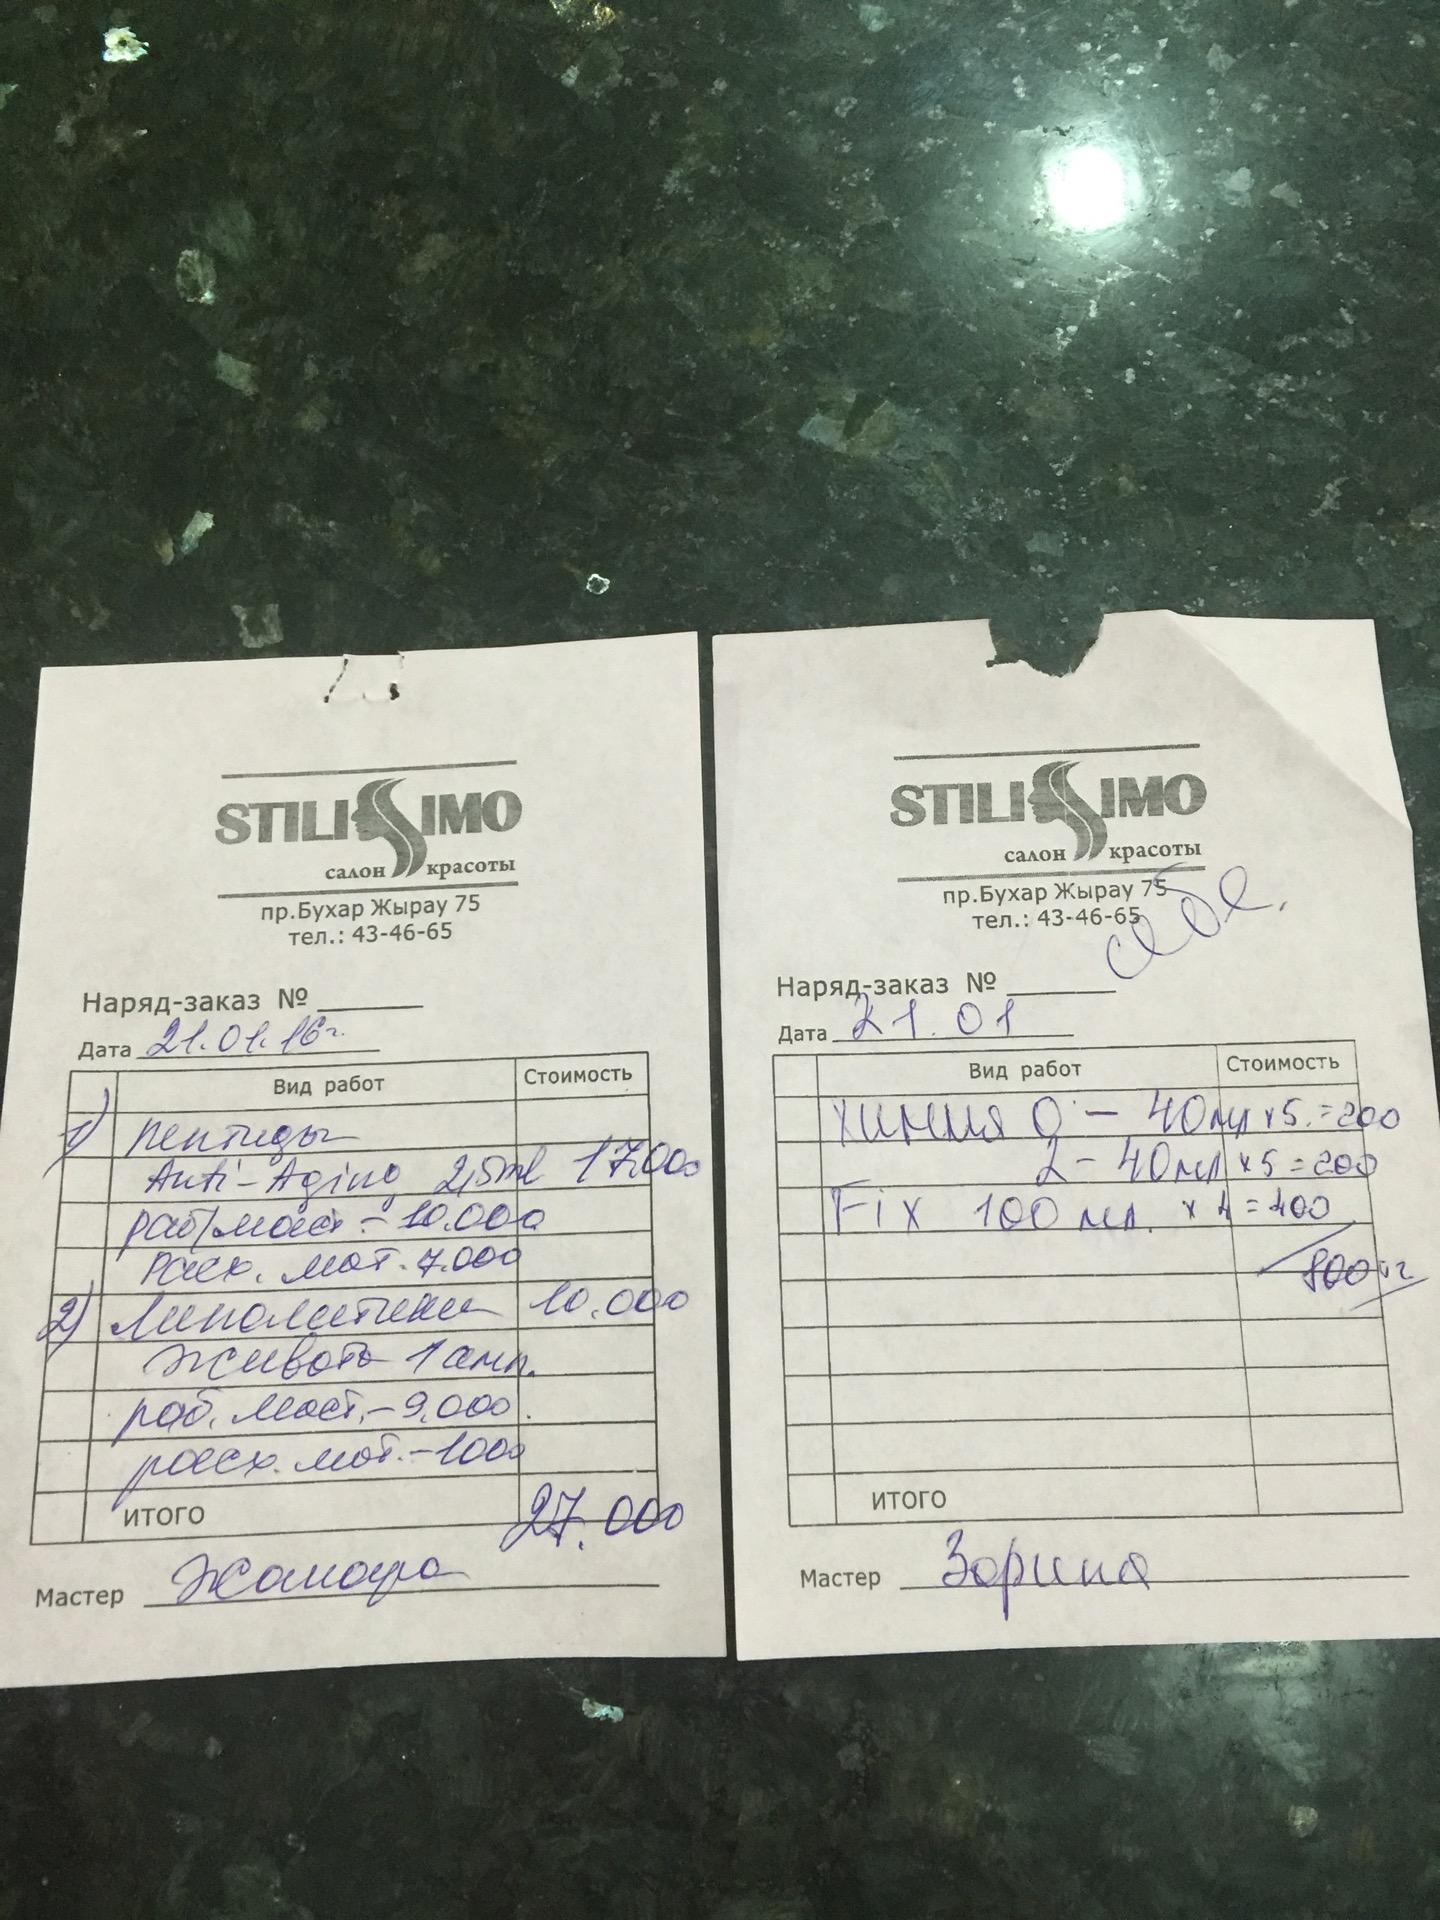 STILISSIMO
салон красоты
пр.Бухар Жырау 75
тел.: 43-46-65
Наряд-заказ №
Дата 21.01.16г.
Вид работ Стоимость
1) пептиды
Anti-Aging 2,5ml 17.000
раб/маст. - 10.000
расх. мат. 7.000
2) Липолитики 10.000
живота 1 амп.
раб. маст. - 9.000.
расх. мат. - 1000
ИТОГО 27.000
Мастер Жамара
STILISSIMO
салон красоты
пр.Бухар Жырау 75
тел.: 43-46-65
себе.
Наряд-заказ №
Дата 21.01
Вид работ Стоимость
химия 0 - 40мл х 5. = 200
2 - 40мл х 5 = 200
Fix 100 мл. х 4 = 400
800 тг
ИТОГО
Мастер Зарина